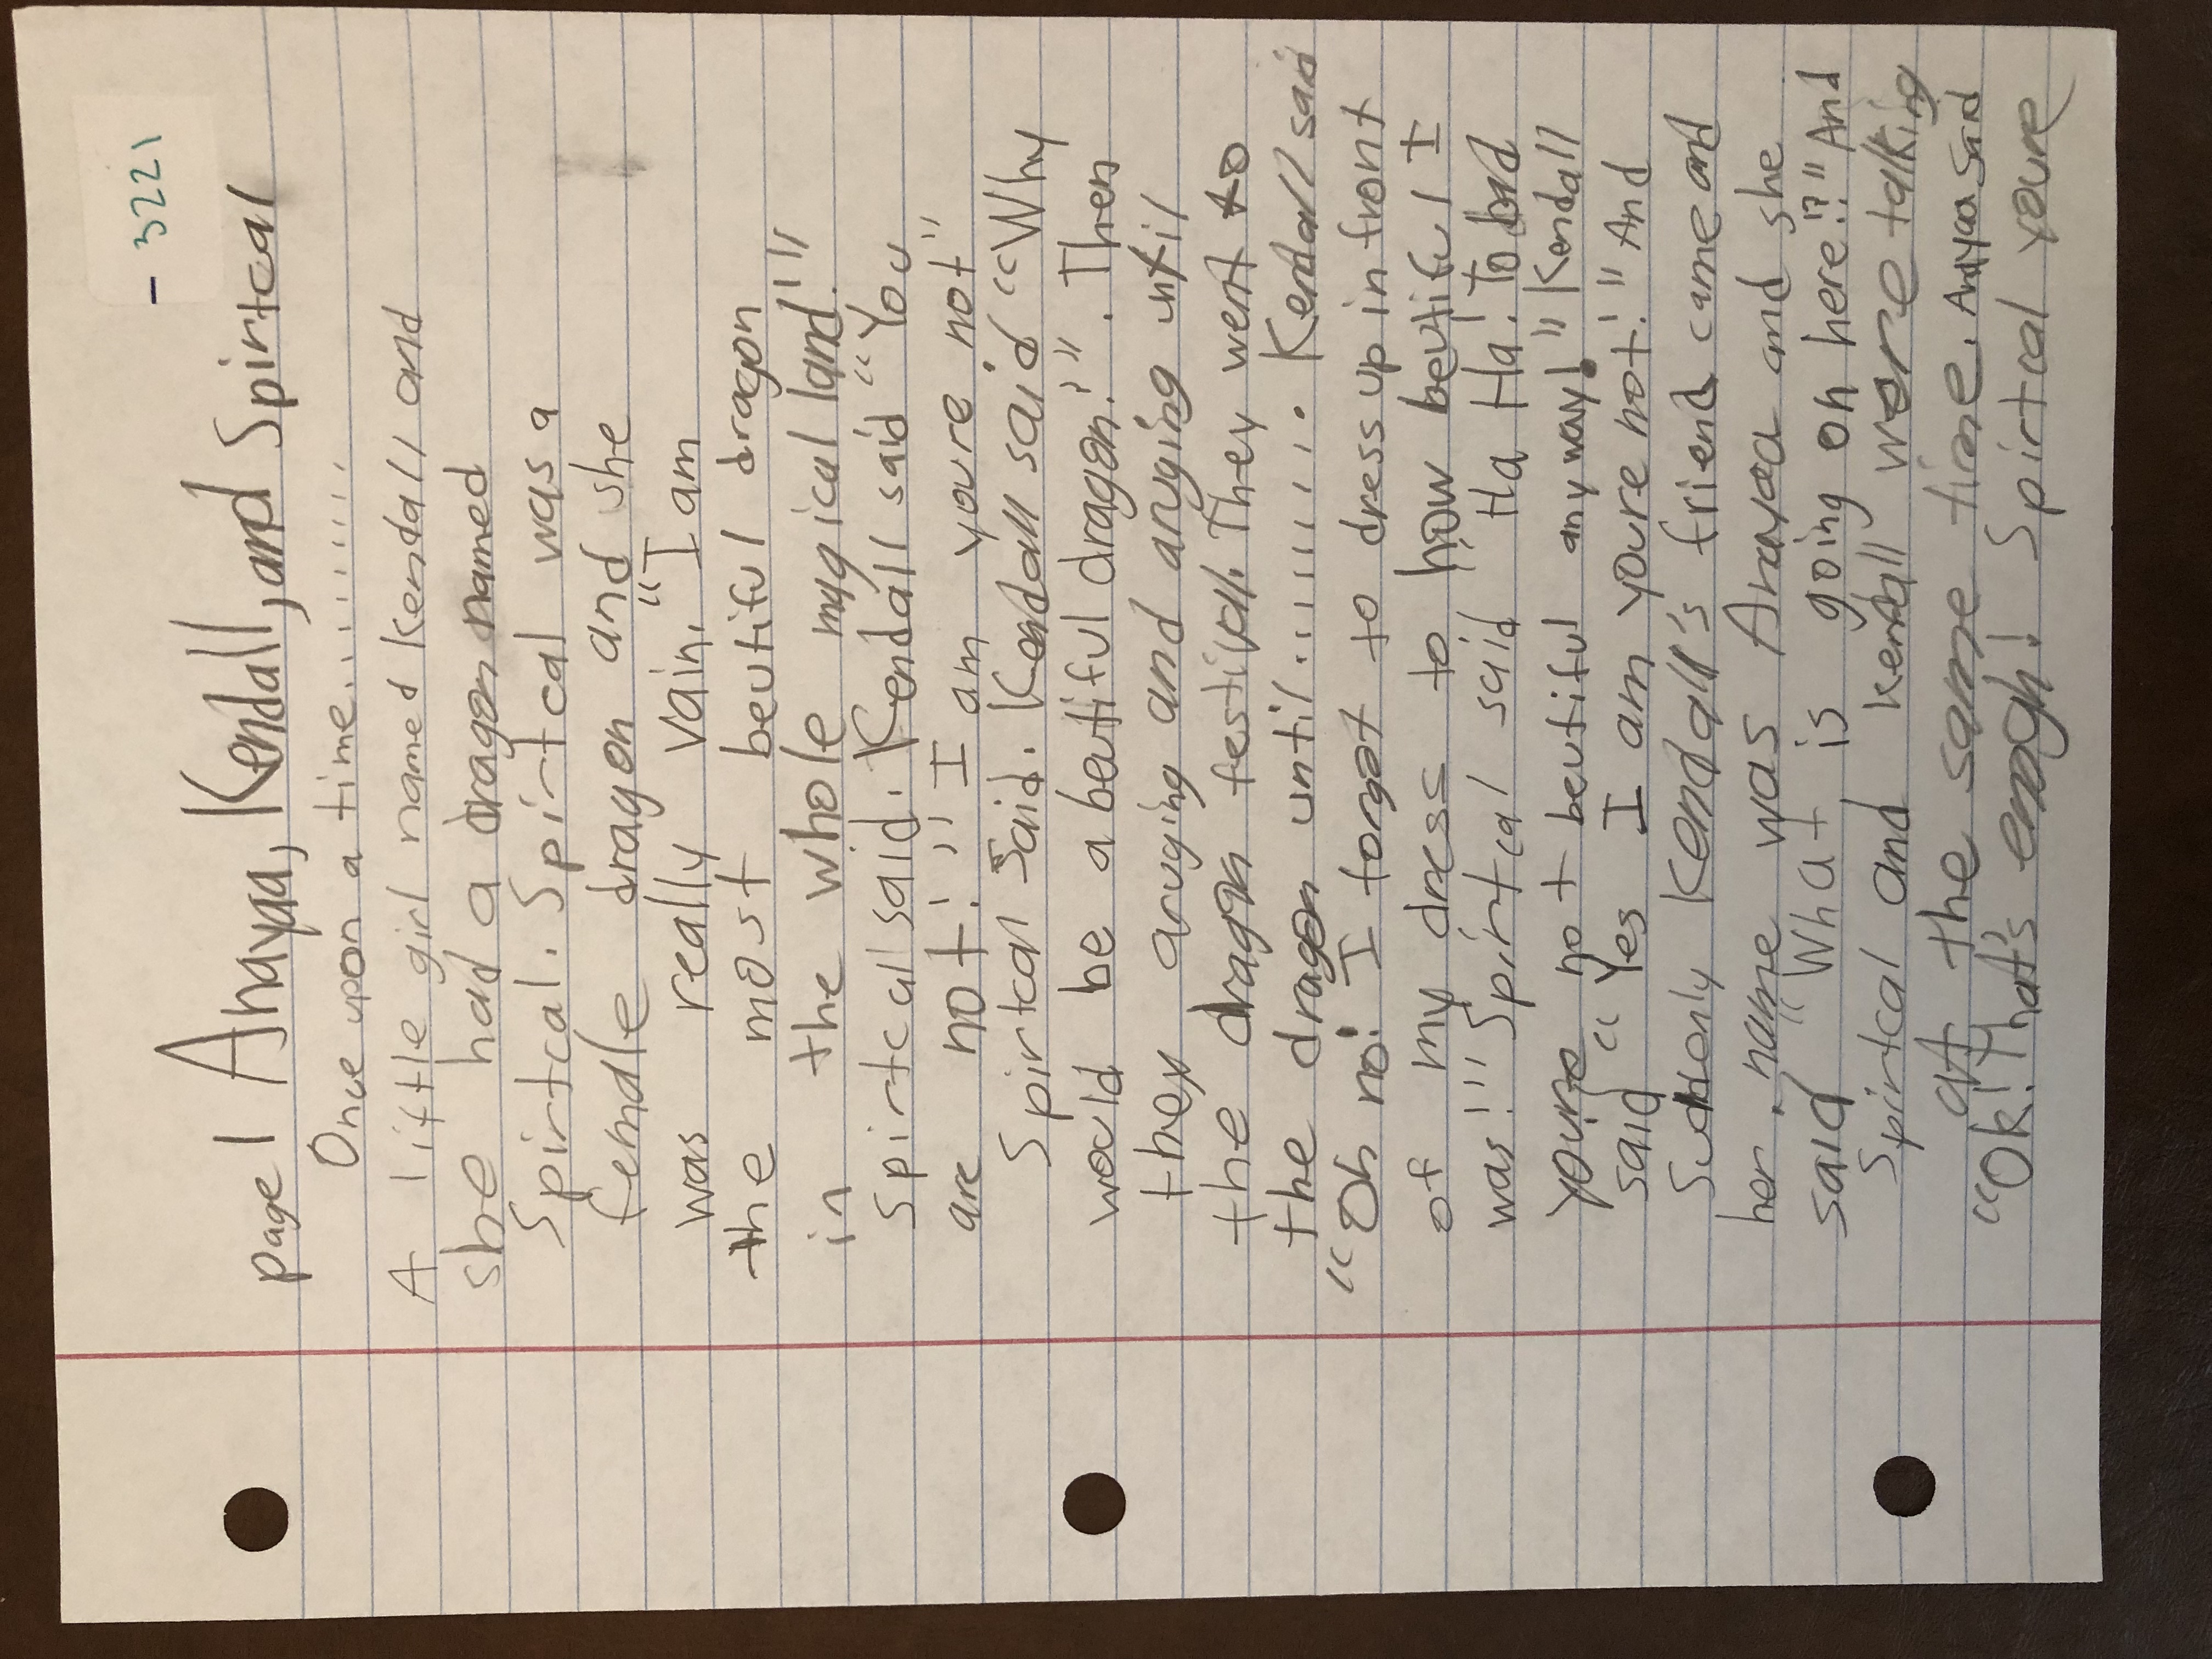 - 3221
page 1 Anayaa, Kendall, and Spirtcal
Once upon a time..........
A little girl named Kendall and
she had a dragon named
Spirtcal. Spirtcal was a
female dragon and she
was really vain. "I am
the most beutiful dragon
in the whole magical land!"
Spirtcal said. Kendall said "You
are not!" I am youre not"
Spirtcal Said. Kendall said "Why
would be a beutiful dragon?". Then
they aruging and aruging until
the dragon festival. They went to
the dragon until.......... Kendall said
"Oh no! I forgot to dress up in front
of my dress to how beutiful I
was!" Spirtcal said "Ha Ha! To bad
youre not beutiful anyway!" Kendall
said "Yes I am youre not!" And
Suddenly Kendall's friend came and
her name was Anayaa and she
said "What is going on here!?" And
Spirtcal and Kendall were talking
at the same time. Anayaa Said
"Ok! That's enogh! Spirtcal youre